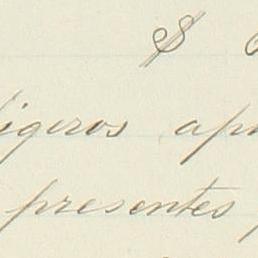 $
ligeros ap
presentes